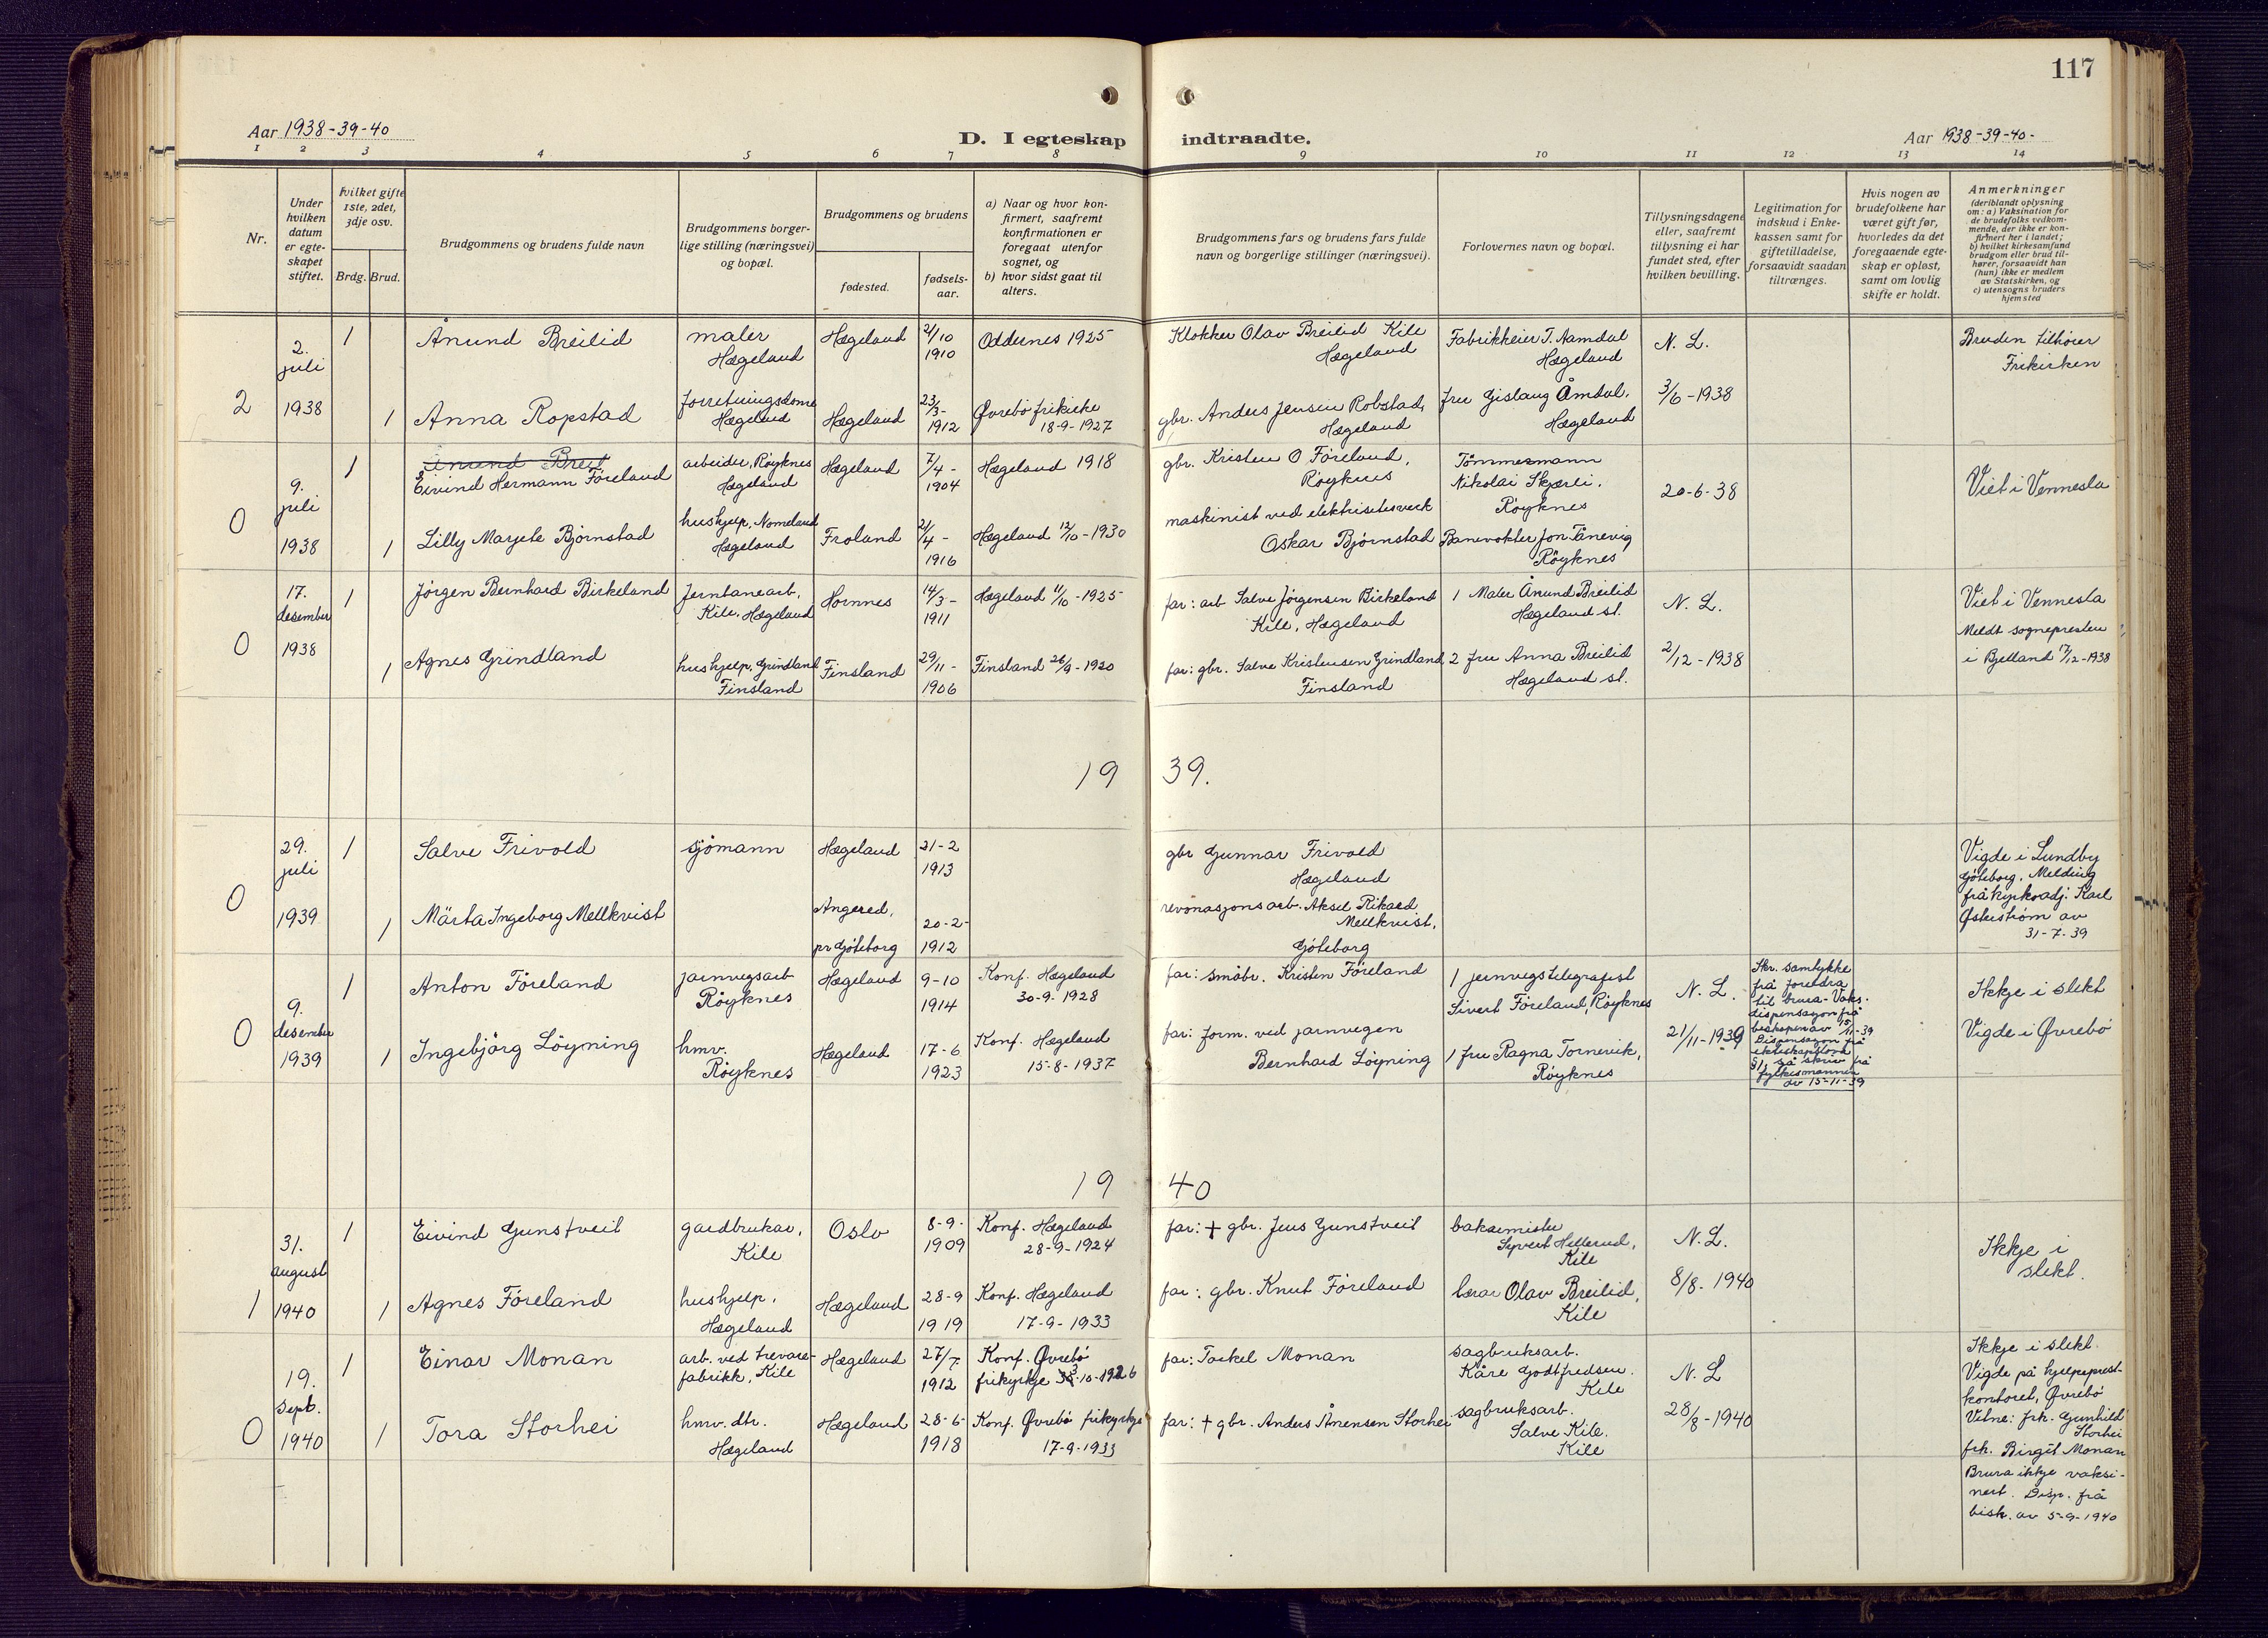 117
Aar 1938-39-40
D. I egteskap indtraadte.
Aar 1938-39-40-
1 2 3 4 5 6 7 8 9 10 11 12 13 14
Nr.
Under
hvilken
datum
er egte-
skapet
stiftet.
Hvilket gifte
1ste, 2det,
3dje osv.
Brdg. Brud.
Brudgommens og brudens fulde navn
Brudgommens borger-
lige stilling (næringsvei)
og bopæl.
Brudgommens og brudens
fødested.
fødsels-
aar.
a) Naar og hvor kon-
firmert, saafremt
konfirmationen er
foregaat utenfor
sognet, og
b) hvor sidst gaat til
alters.
Brudgommens fars og brudens fars fulde
navn og borgerlige stillinger (næringsvei).
Forlovernes navn og bopæl.
Tillysningsdagene
eller, saafremt
tillysning ei har
fundet sted, efter
hvilken bevilling.
Legitimation for
indskud i Enke-
kassen samt for
giftetilladelse,
forsaavidt saadan
tiltrænges.
Hvis nogen av
brudefolkene har
været gift før,
hvorledes da det
foregaaende egte-
skap er opløst,
samt om lovlig
skifte er holdt.
Anmerkninger
(deriblandt oplysning
om: a) Vaksination for
de brudefolks vedkom-
mende, der ikke er kon-
firmert her i landet;
b) hvilket kirkesamfund
brudgom eller brud til-
hører, forsaavidt han
(hun) ikke er medlem
av Statskirken, og
c) utensogns bruders
hjemsted
2
2.
juli
1938
1
Ånund Breilid
maler
Hægeland
Hægeland
2/10
1910
Oddernes 1925
Klokker Olav Breilid Kile
Hægeland
Fabrikkeier T. Aamdal
Hægeland
N. L.
Bruden tilhører
Frikirken
1
Anna Ropstad
forretningsdame
Hægeland
Hægeland
23/3-
1912
Øvrebø frikirke
18-9-1927
gbr. Anders Jensen Robstad,
Hægeland
fru Gislaug Åmdal,
Hægeland
3/6-1938
0
9.
juli
1938
1
Ånund Breil
Eivind Hermann Föreland
arbeider, Røyknes
Hægeland
Hægeland
7/4-
1904
Hægeland 1918
gbr. Kristen O Föreland,
Røyknes
Tömmermann
Nikolai Skjerli,
Røyknes
20-6-38
Viet i Vennesla
1
Lilly Marjete Bjørnstad
hushjelp, Nomeland
Hægeland
Froland
21/4-
1916
Hægeland 12/10-1930
maskinist ved elektrisitetsverk
Oskar Bjørnstad
Banevokter Jon Tånevig
Røyknes
0
17.
desember
1938
1
Jørgen Bernhard Birkeland
Jernbanearb.
Kile, Hægeland
Hornnes
14/3-
1911
Hægeland 11/10-1925
far: arb Salve Jørgensen Birkeland
Kile, Hægeland
1 Maler Ånund Breilid
Hægeland st.
N. L.
Viet i Vennesla
Meldt sognepresten
i Bjelland 17/12-1938
1
Agnes Grindland
hushjelp, Grindland
Finsland
Finsland
29/11-
1906
Finsland 26/9-1920
far: gbr. Salve Kristensen Grindland
Finsland
2 fru Anna Breilid
Hægeland st.
2/12-1938
19 39.
0
29.
juli
1939
1
Salve Frivold
sjömann
Hægeland
21-2
1913
gbr Gunnar Frivold
Hægeland
Vigde i Lundby
Göteborg. Melding
frå kyrkoadj. Karl
Østerstrøm av
31-7-39
1
Märta Ingeborg Mellkvist
Angered,
pr Göteborg
20-2-
1912
revonasjonsarb. Aksel Rikard
Mellkvist,
Göteborg
0
9.
desember
1939
1
Anton Föreland
jarnvegsarb
Røyknes
Hægeland
9-10
1914
Konf. Hægeland
30-9-1928
far: småbr. Kristen Föreland
1 jernvegstelegrafist
Sivert Föreland, Røyknes
N. L.
Skr. samtykke
frå foreldra
til brura - Vaks.
dispensasjon frå
biskopen av 15/11-39
Dispensasjon frå
ekteskapslova
§1, på skriv frå
fylkesmannen
av 15-11-39
Ikkje i slekt
Vigde i Øvrebö
1
Ingebjörg Löyning
hmv.
Røyknes
Hægeland
17-6
1923
Konf. Hægeland
15-8-1937
far: form. ved jarnvegen
Bernhard Löyning
1 fru Ragna Tornevik,
Røyknes
21/11-1939
19 40
1
31.
august
1940
1
Eivind Gunstveit
gardbrukar,
Kile
Oslo
8-9-
1909
Konf. Hægeland
28-9-1924
far: + gbr. Jens Gunstveit
bakarmister
Syvert Hellerud,
Kile
N. L.
Ikkje i
slekt.
1
Agnes Föreland
hushjelp,
Hægeland
Hægeland
28-9
1919
Konf. Hægeland
17-9-1933
far: gbr. Knut Föreland
lærar Olav Breilid,
Kile
8/8-1940
0
19.
sept.
1940
1
Einar Monan
arb. ved trevare-
fabrikk, Kile
Hægeland
27/7
1912
Konf. Øvrebö
frikyrkje 3-10-1926
far: Torkel Monan
sagbruksarb.
Kåre Godtfredsen.
Kile
N. L
Ikkje i slekt.
Vigde på hjelpeprest-
kontoret, Øvrebö
Vitne: frk. Gunhild
Storhei
frk. Birgit Monan
Brura ikkje vaksi-
nert. Disp. frå
bisk. av 5-9-1940
1
Tora Storhei
hmv. dtr.
Hægeland
Hægeland
28-6-
1918
Konf. Øvrebö frikyrkje
17-9-1933
far: + gbr. Anders Ånensen Storhei
sagbruksarb.
Salve Kile.
Kile
28/8-1940